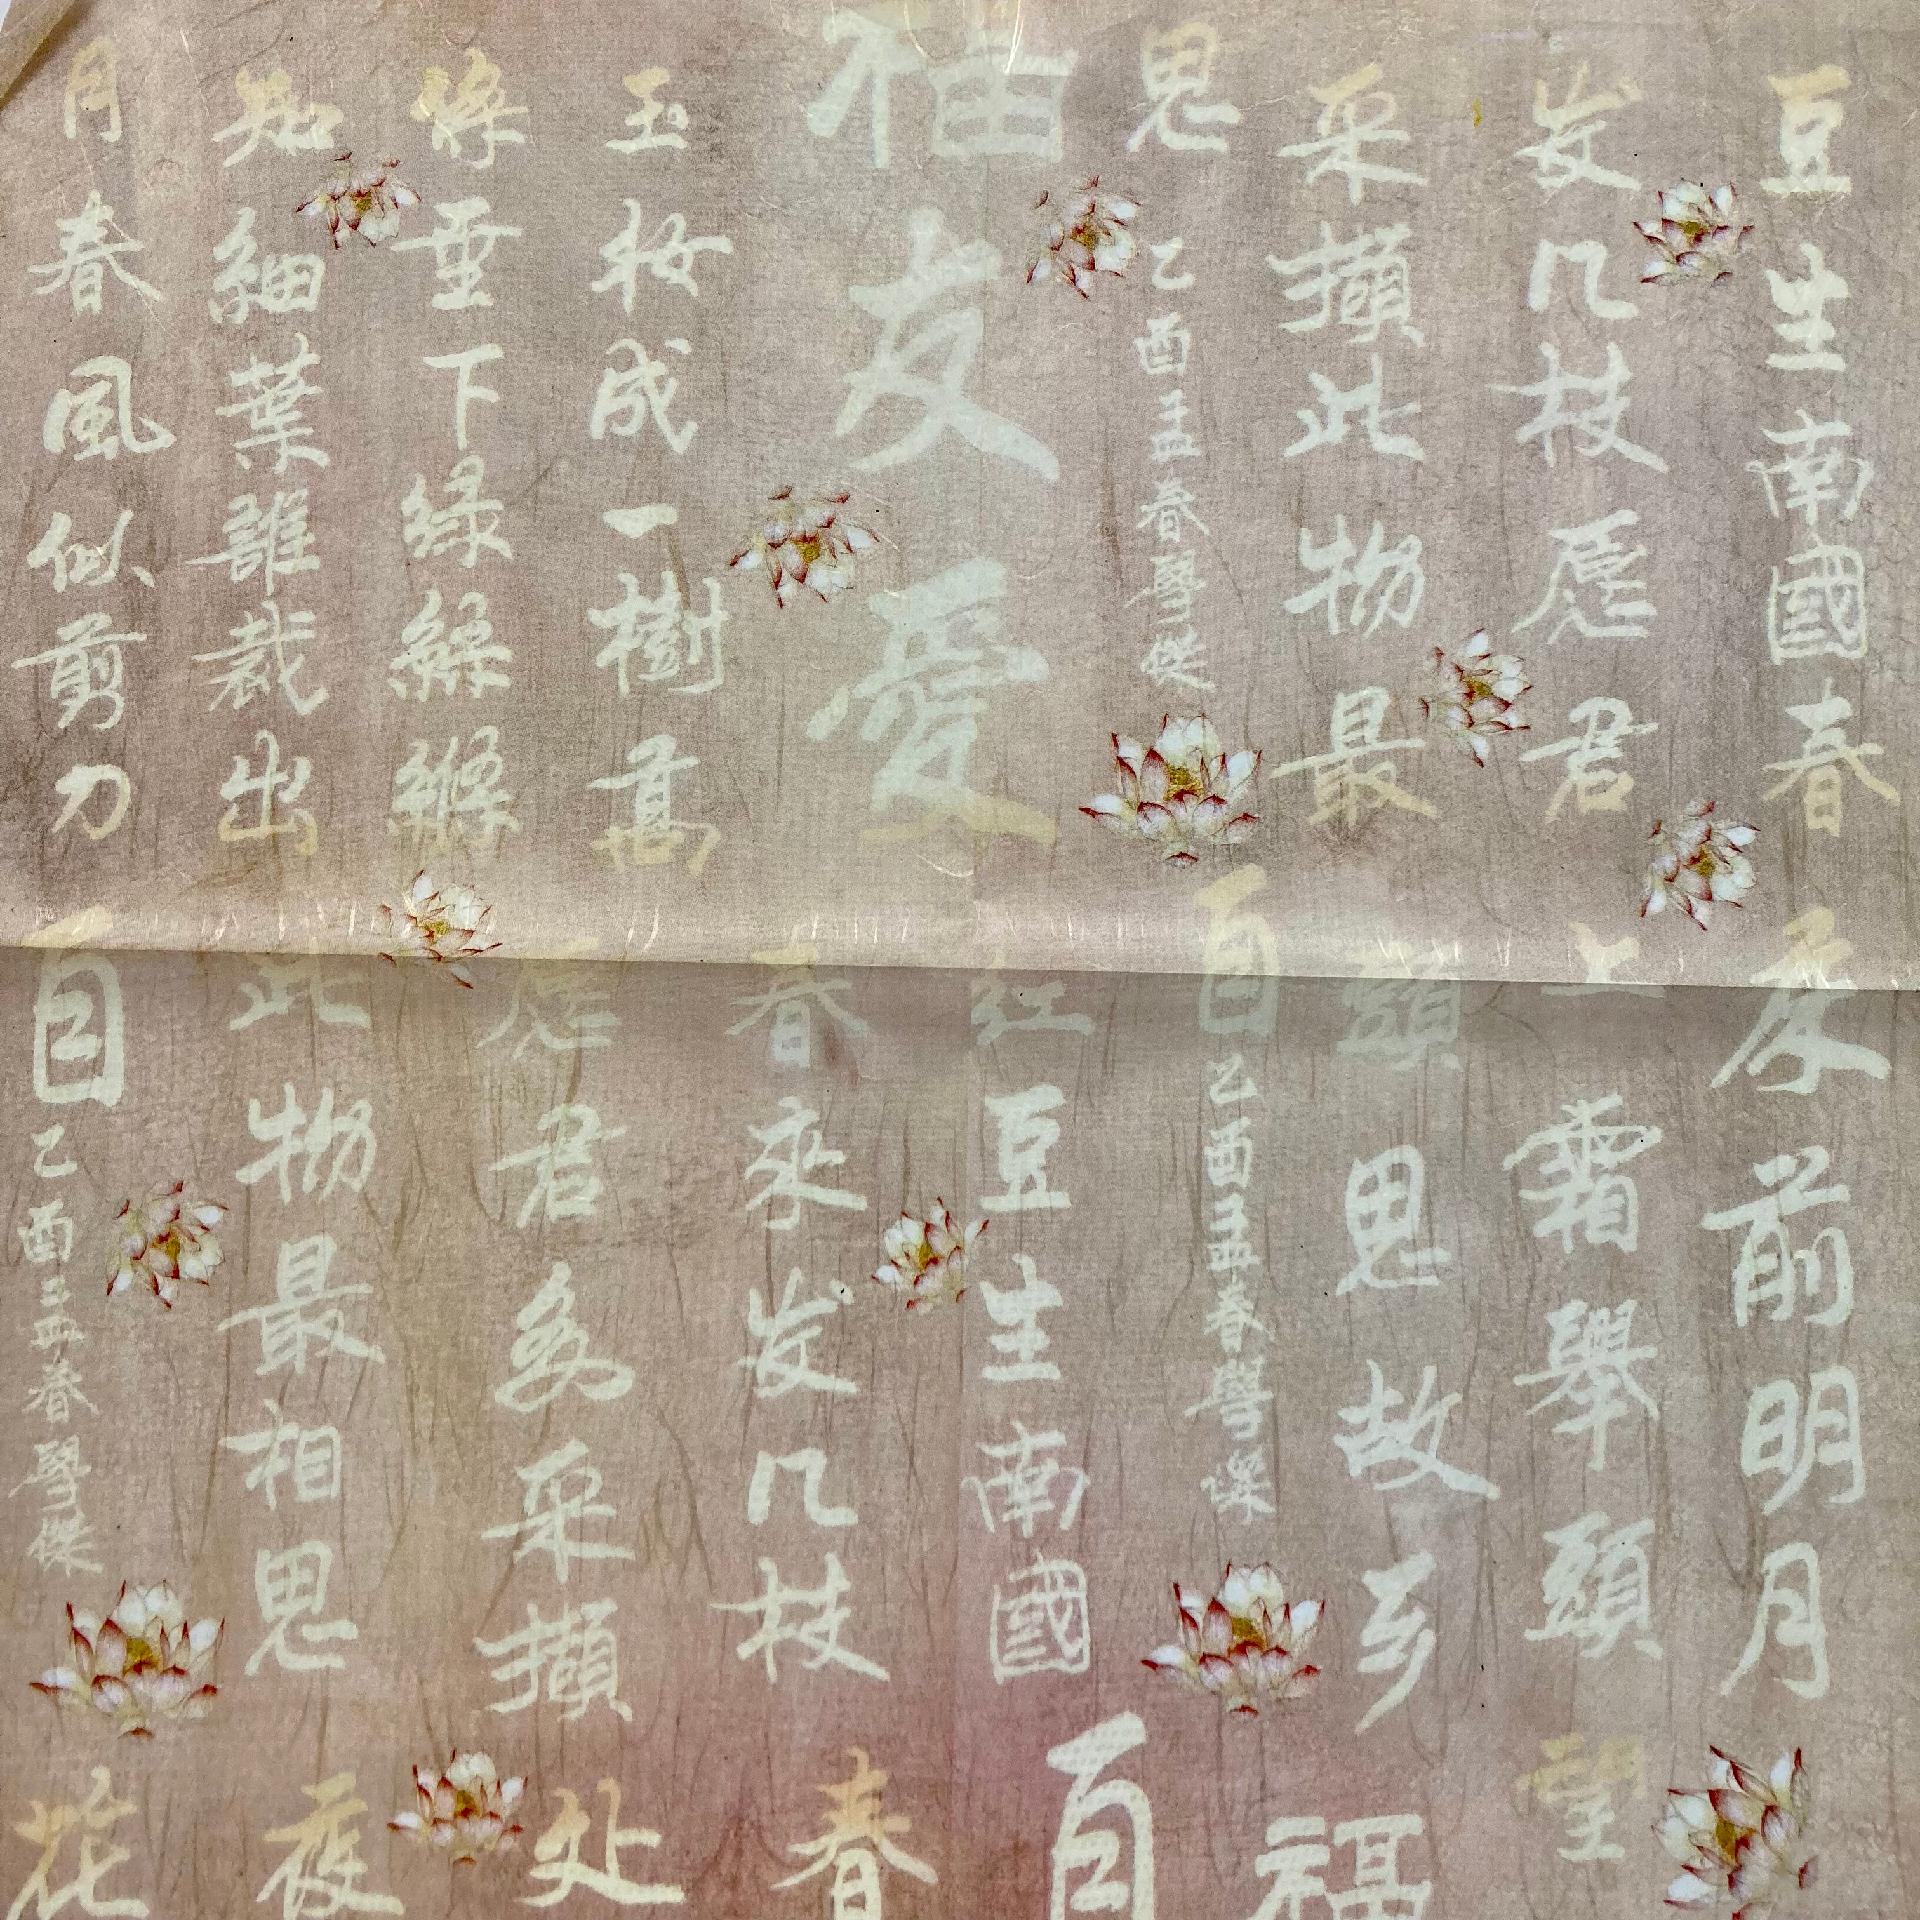 豆生南國春
发几枝愿君
采擷此物最
思
乙酉孟春
友愛
玉妆成一樹高
絛垂下綠絲絛
知細葉誰裁出
月春風似剪刀
床前明月
上霜舉頭望
頭思故乡
百
乙酉孟春
紅豆生南國
春來发几枝
愿君多采擷
此物最相思
百
乙酉孟春
百福
春
处
夜
花